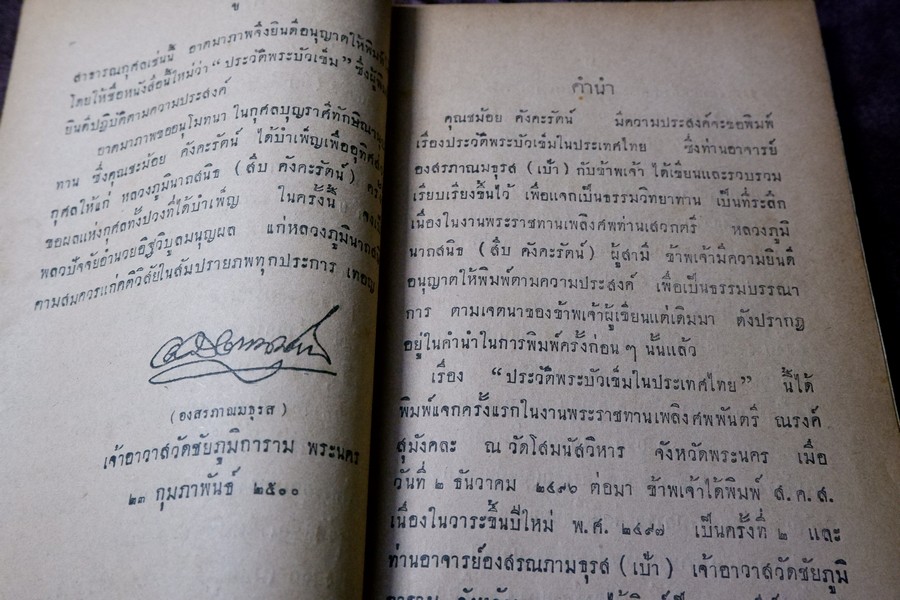 ข
สาธารณกุศลเช่นนี้ อาตมาภาพจึงยินดีอนุญาตให้พิมพ์
โดยให้ชื่อหนังสือนี้ใหม่ว่า “ประวัติพระบัวเข็ม” ซึ่งผู้พิมพ์
ยินดีปฏิบัติตามความประสงค์
อาตมาภาพขออนุโมทนา ในกุศลบุญราศีทักษิณา
ทาน ซึ่งคุณชะม้อย คังคะรัตน์ ได้บำเพ็ญเพื่ออุทิศ
กุศลให้แก่ หลวงภูมินาถสนิธ (สืบ คังคะรัตน์)
ขอผลแห่งกุศลทั้งปวงที่ได้บำเพ็ญ ในครั้งนี้ จง
พลวปัจจัยอำนวยอิฐวิบูลมนุญผล แก่หลวงภูมินาถสนิธ
ตามสมควรแก่คติวิสัยในสัมปรายภพทุกประการ เทอญ
(องสรภาณมธุรส)
เจ้าอาวาสวัดชัยภูมิการาม พระนคร
๒๓ กุมภาพันธ์ ๒๕๐๐
คำนำ
คุณชม้อย คังคะรัตน์ มีความประสงค์จะขอพิมพ์
เรื่องประวัติพระบัวเข็มในประเทศไทย ซึ่งท่านอาจารย์
องสรภาณมธุรส (เป้า) กับข้าพเจ้า ได้เขียนและรวบรวม
เรียบเรียงขึ้นไว้ เพื่อแจกเป็นธรรมวิทยาทาน เป็นที่ระลึก
เนื่องในงานพระราชทานเพลิงศพท่านเสวกตรี หลวงภูมิ
นาถสนิธ (สืบ คังคะรัตน์) ผู้สามี ข้าพเจ้ามีความยินดี
อนุญาตให้พิมพ์ตามความประสงค์ เพื่อเป็นธรรมบรรณา
การ ตามเจตนาของข้าพเจ้าผู้เขียนแต่เดิมมา ดังปรากฏ
อยู่ในคำนำในการพิมพ์ครั้งก่อน ๆ นั้นแล้ว
เรื่อง “ประวัติพระบัวเข็มในประเทศไทย” นี้ได้
พิมพ์แจกครั้งแรกในงานพระราชทานเพลิงศพพันตรี ณรงค์
สุมังคละ ณ วัดโสมนัสวิหาร จังหวัดพระนคร เมื่อ
วันที่ ๒ ธันวาคม ๒๔๙๖ ต่อมา ข้าพเจ้าได้พิมพ์ ส.ค.ส.
เนื่องในวาระขึ้นปีใหม่ พ.ศ. ๒๔๙๗ เป็นครั้งที่ ๒ และ
ท่านอาจารย์องสรณภามธุรส (เป้า) เจ้าอาวาสวัดชัยภูมิ